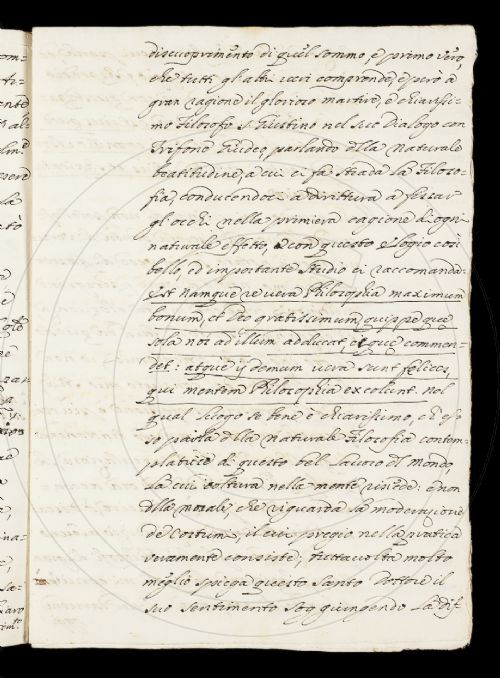 discuoprimento di quel sommo, è primo uero,
che tutti gl'altri ueri comprende, è però à
gran ragione il glorioso martire, è chiarissi-
mo Filosofo S. Giustino nel suo Dialogo con
Trifone Giudeo, parlando della Naturale
beatitudine, a cui ci fà strada la Filoso-
fia, conducendoci à dirittura a fissar
gl'occhi nella primiera cagione d'ogni
naturale effetto, con questo elogio così
bello, ed importante studio ci raccomanda:
Est namque re uera Philosophia maximum
bonum, et Deo gratissimum, quippe quę
sola nos ad illum adducat, eique commen-
det: atque ij demum uerè sunt felices,
qui mentem Philosophia excolunt. Nel
qual Elogo se bene è chiarissimo, ch'es-
so parla della naturale Filosofia contem-
platrice di questo bel Lauoro del Mondo,
la cui coltura nella mente risiede: è non
della morale, che riguarda la moderazione
de' costumi, il cui pregio nella pratica
ueramente consiste; tuttauolta molto
meglio spiega questo Santo Dottore il
suo sentimento soggiungendo la dif-